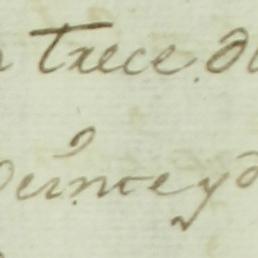 trece de
veinte y d